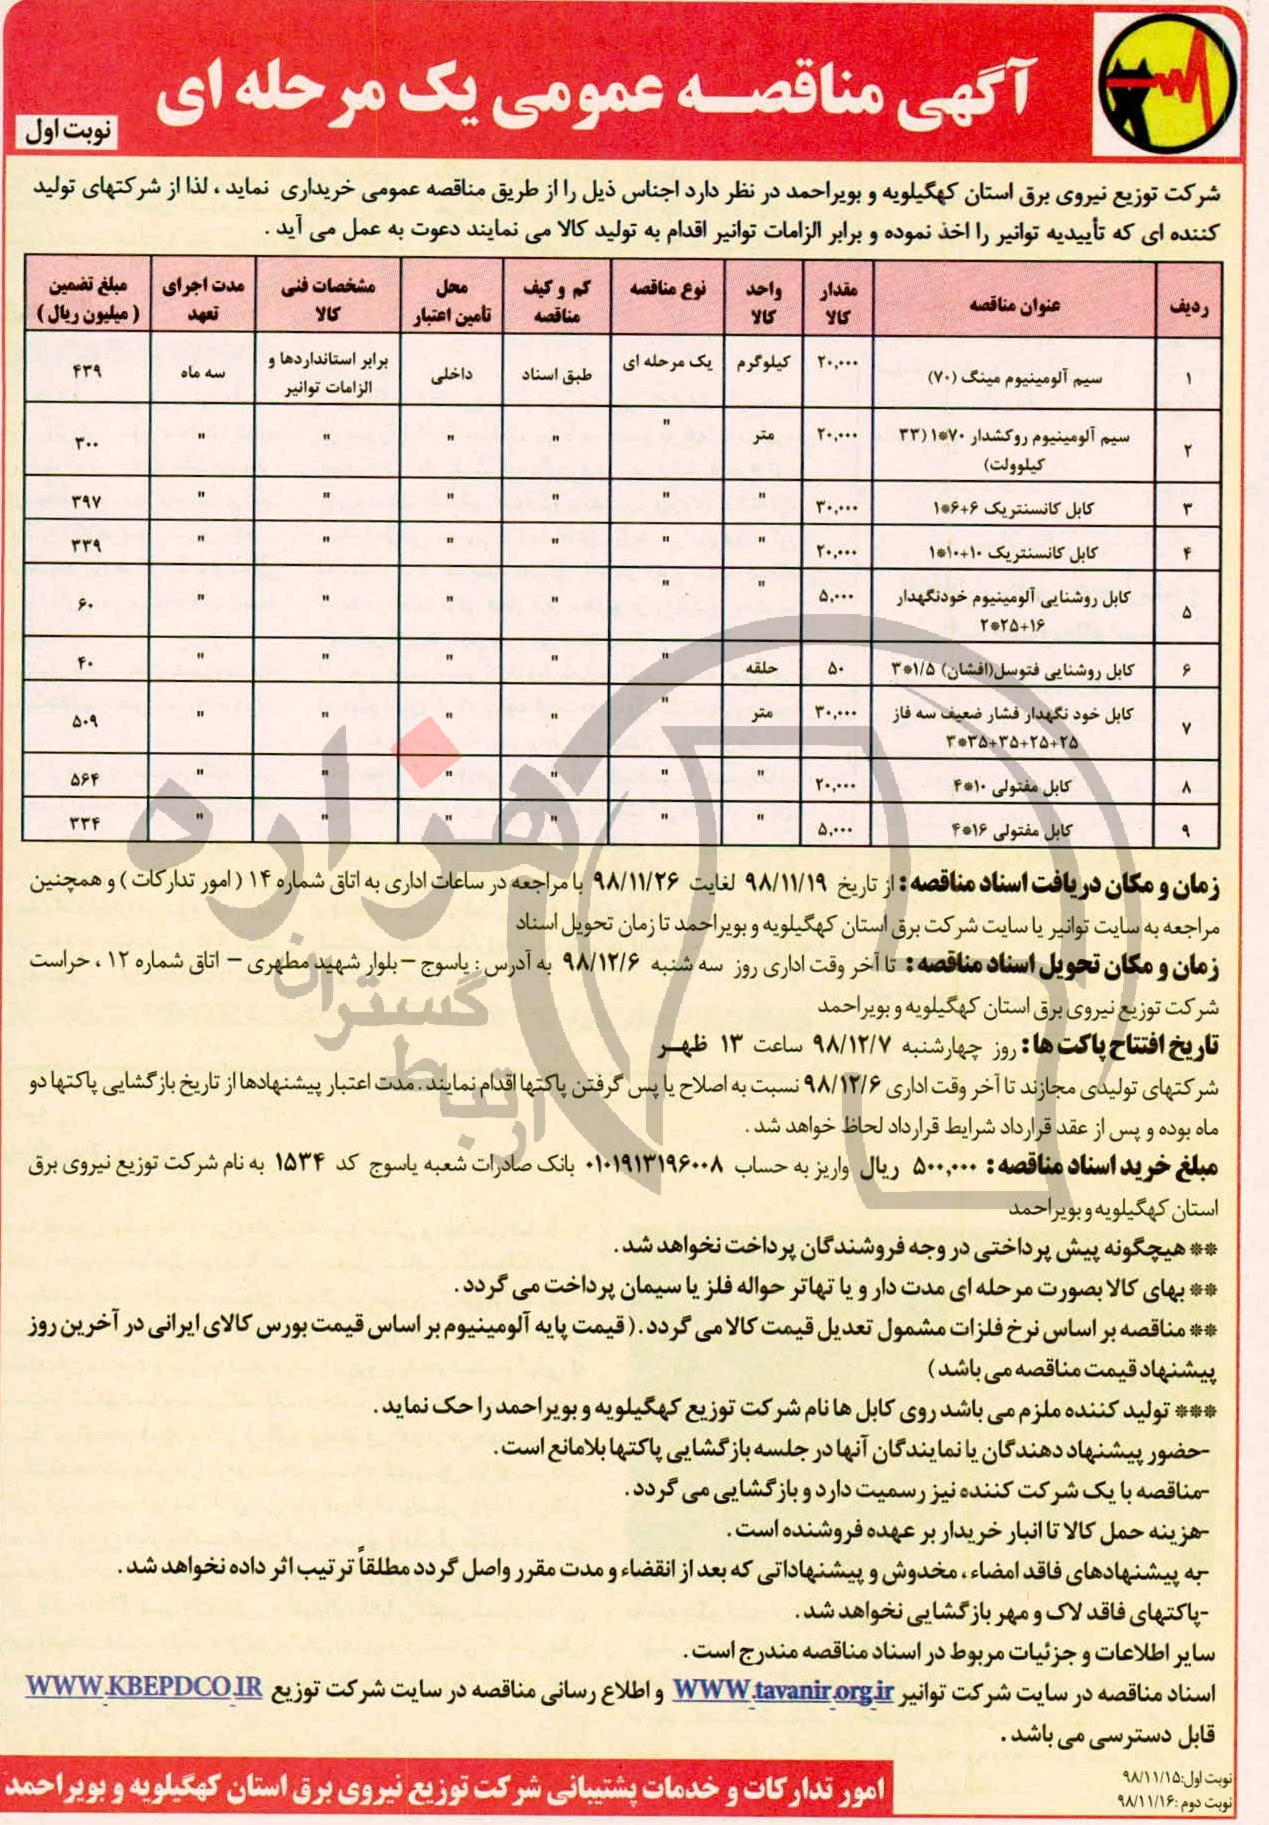 آگهی مناقصه عمومی یک مرحله ای
نوبت اول
شرکت توزیع نیروی برق استان کهگیلویه و بویراحمد در نظر دارد اجناس ذیل را از طریق مناقصه عمومی خریداری نماید ، لذا از شرکتهای تولید
کننده ای که تأییدیه توانیر را اخذ نموده و برابر الزامات توانیر اقدام به تولید کالا می نمایند دعوت به عمل می آید .
ردیف | عنوان مناقصه | مقدار کالا | واحد کالا | نوع مناقصه | کم و کیف مناقصه | محل تأمین اعتبار | مشخصات فنی کالا | مدت اجرای تعهد | مبلغ تضمین ( میلیون ریال )
۱ | سیم آلومینیوم مینگ (۷۰) | ۲۰,۰۰۰ | کیلوگرم | یک مرحله ای | طبق اسناد | داخلی | برابر استانداردها و الزامات توانیر | سه ماه | ۴۳۹
۲ | سیم آلومینیوم روکشدار ۷۰*۱ (۳۳ کیلوولت) | ۲۰,۰۰۰ | متر | " | " | " | " | " | ۳۰۰
۳ | کابل کانسنتریک ۶+۶*۱ | ۳۰,۰۰۰ | " | " | " | " | " | " | ۳۹۷
۴ | کابل کانسنتریک ۱۰+۱۰*۱ | ۲۰,۰۰۰ | " | " | " | " | " | " | ۳۳۹
۵ | کابل روشنایی آلومینیوم خودنگهدار ۱۶+۲۵*۲ | ۵,۰۰۰ | " | " | " | " | " | " | ۶۰
۶ | کابل روشنایی فتوسل(افشان) ۱/۵*۳ | ۵۰ | حلقه | " | " | " | " | " | ۴۰
۷ | کابل خود نگهدار فشار ضعیف سه فاز ۲۵+۲۵+۳۵+۳۵*۳ | ۳۰,۰۰۰ | متر | " | " | " | " | " | ۵۰۹
۸ | کابل مفتولی ۱۰*۴ | ۲۰,۰۰۰ | " | " | " | " | " | " | ۵۶۴
۹ | کابل مفتولی ۱۶*۴ | ۵,۰۰۰ | " | " | " | " | " | " | ۳۳۴
زمان و مکان دریافت اسناد مناقصه : از تاریخ ۹۸/۱۱/۱۹ لغایت ۹۸/۱۱/۲۶ با مراجعه در ساعات اداری به اتاق شماره ۱۴ ( امور تدارکات ) و همچنین
مراجعه به سایت توانیر یا سایت شرکت برق استان کهگیلویه و بویراحمد تا زمان تحویل اسناد
زمان و مکان تحویل اسناد مناقصه : تا آخر وقت اداری روز سه شنبه ۹۸/۱۲/۶ به آدرس : یاسوج – بلوار شهید مطهری – اتاق شماره ۱۲ ، حراست
شرکت توزیع نیروی برق استان کهگیلویه و بویراحمد
تاریخ افتتاح پاکت ها : روز چهارشنبه ۹۸/۱۲/۷ ساعت ۱۳ ظهر
شرکتهای تولیدی مجازند تا آخر وقت اداری ۹۸/۱۲/۶ نسبت به اصلاح یا پس گرفتن پاکتها اقدام نمایند . مدت اعتبار پیشنهادها از تاریخ بازگشایی پاکتها دو
ماه بوده و پس از عقد قرارداد شرایط قرارداد لحاظ خواهد شد .
مبلغ خرید اسناد مناقصه : ۵۰۰,۰۰۰ ریال واریز به حساب ۰۱۰۱۹۱۳۱۹۶۰۰۸ بانک صادرات شعبه یاسوج کد ۱۵۳۴ به نام شرکت توزیع نیروی برق
استان کهگیلویه و بویراحمد
** هیچگونه پیش پرداختی در وجه فروشندگان پرداخت نخواهد شد .
** بهای کالا بصورت مرحله ای مدت دار و یا تهاتر حواله فلز یا سیمان پرداخت می گردد .
** مناقصه بر اساس نرخ فلزات مشمول تعدیل قیمت کالا می گردد . ( قیمت پایه آلومینیوم بر اساس قیمت بورس کالای ایرانی در آخرین روز
پیشنهاد قیمت مناقصه می باشد )
*** تولید کننده ملزم می باشد روی کابل ها نام شرکت توزیع کهگیلویه و بویراحمد را حک نماید .
-حضور پیشنهاد دهندگان یا نمایندگان آنها در جلسه بازگشایی پاکتها بلامانع است .
-مناقصه با یک شرکت کننده نیز رسمیت دارد و بازگشایی می گردد .
-هزینه حمل کالا تا انبار خریدار بر عهده فروشنده است .
-به پیشنهادهای فاقد امضاء ، مخدوش و پیشنهاداتی که بعد از انقضاء و مدت مقرر واصل گردد مطلقاً ترتیب اثر داده نخواهد شد .
-پاکتهای فاقد لاک و مهر بازگشایی نخواهد شد .
سایر اطلاعات و جزئیات مربوط در اسناد مناقصه مندرج است .
اسناد مناقصه در سایت شرکت توانیر WWW.tavanir.org.ir و اطلاع رسانی مناقصه در سایت شرکت توزیع WWW.KBEPDCO.IR
قابل دسترسی می باشد .
نوبت اول:۹۸/۱۱/۱۵
نوبت دوم :۹۸/۱۱/۱۶
امور تدارکات و خدمات پشتیبانی شرکت توزیع نیروی برق استان کهگیلویه و بویراحمد
هزاره
گستران
ارتباط